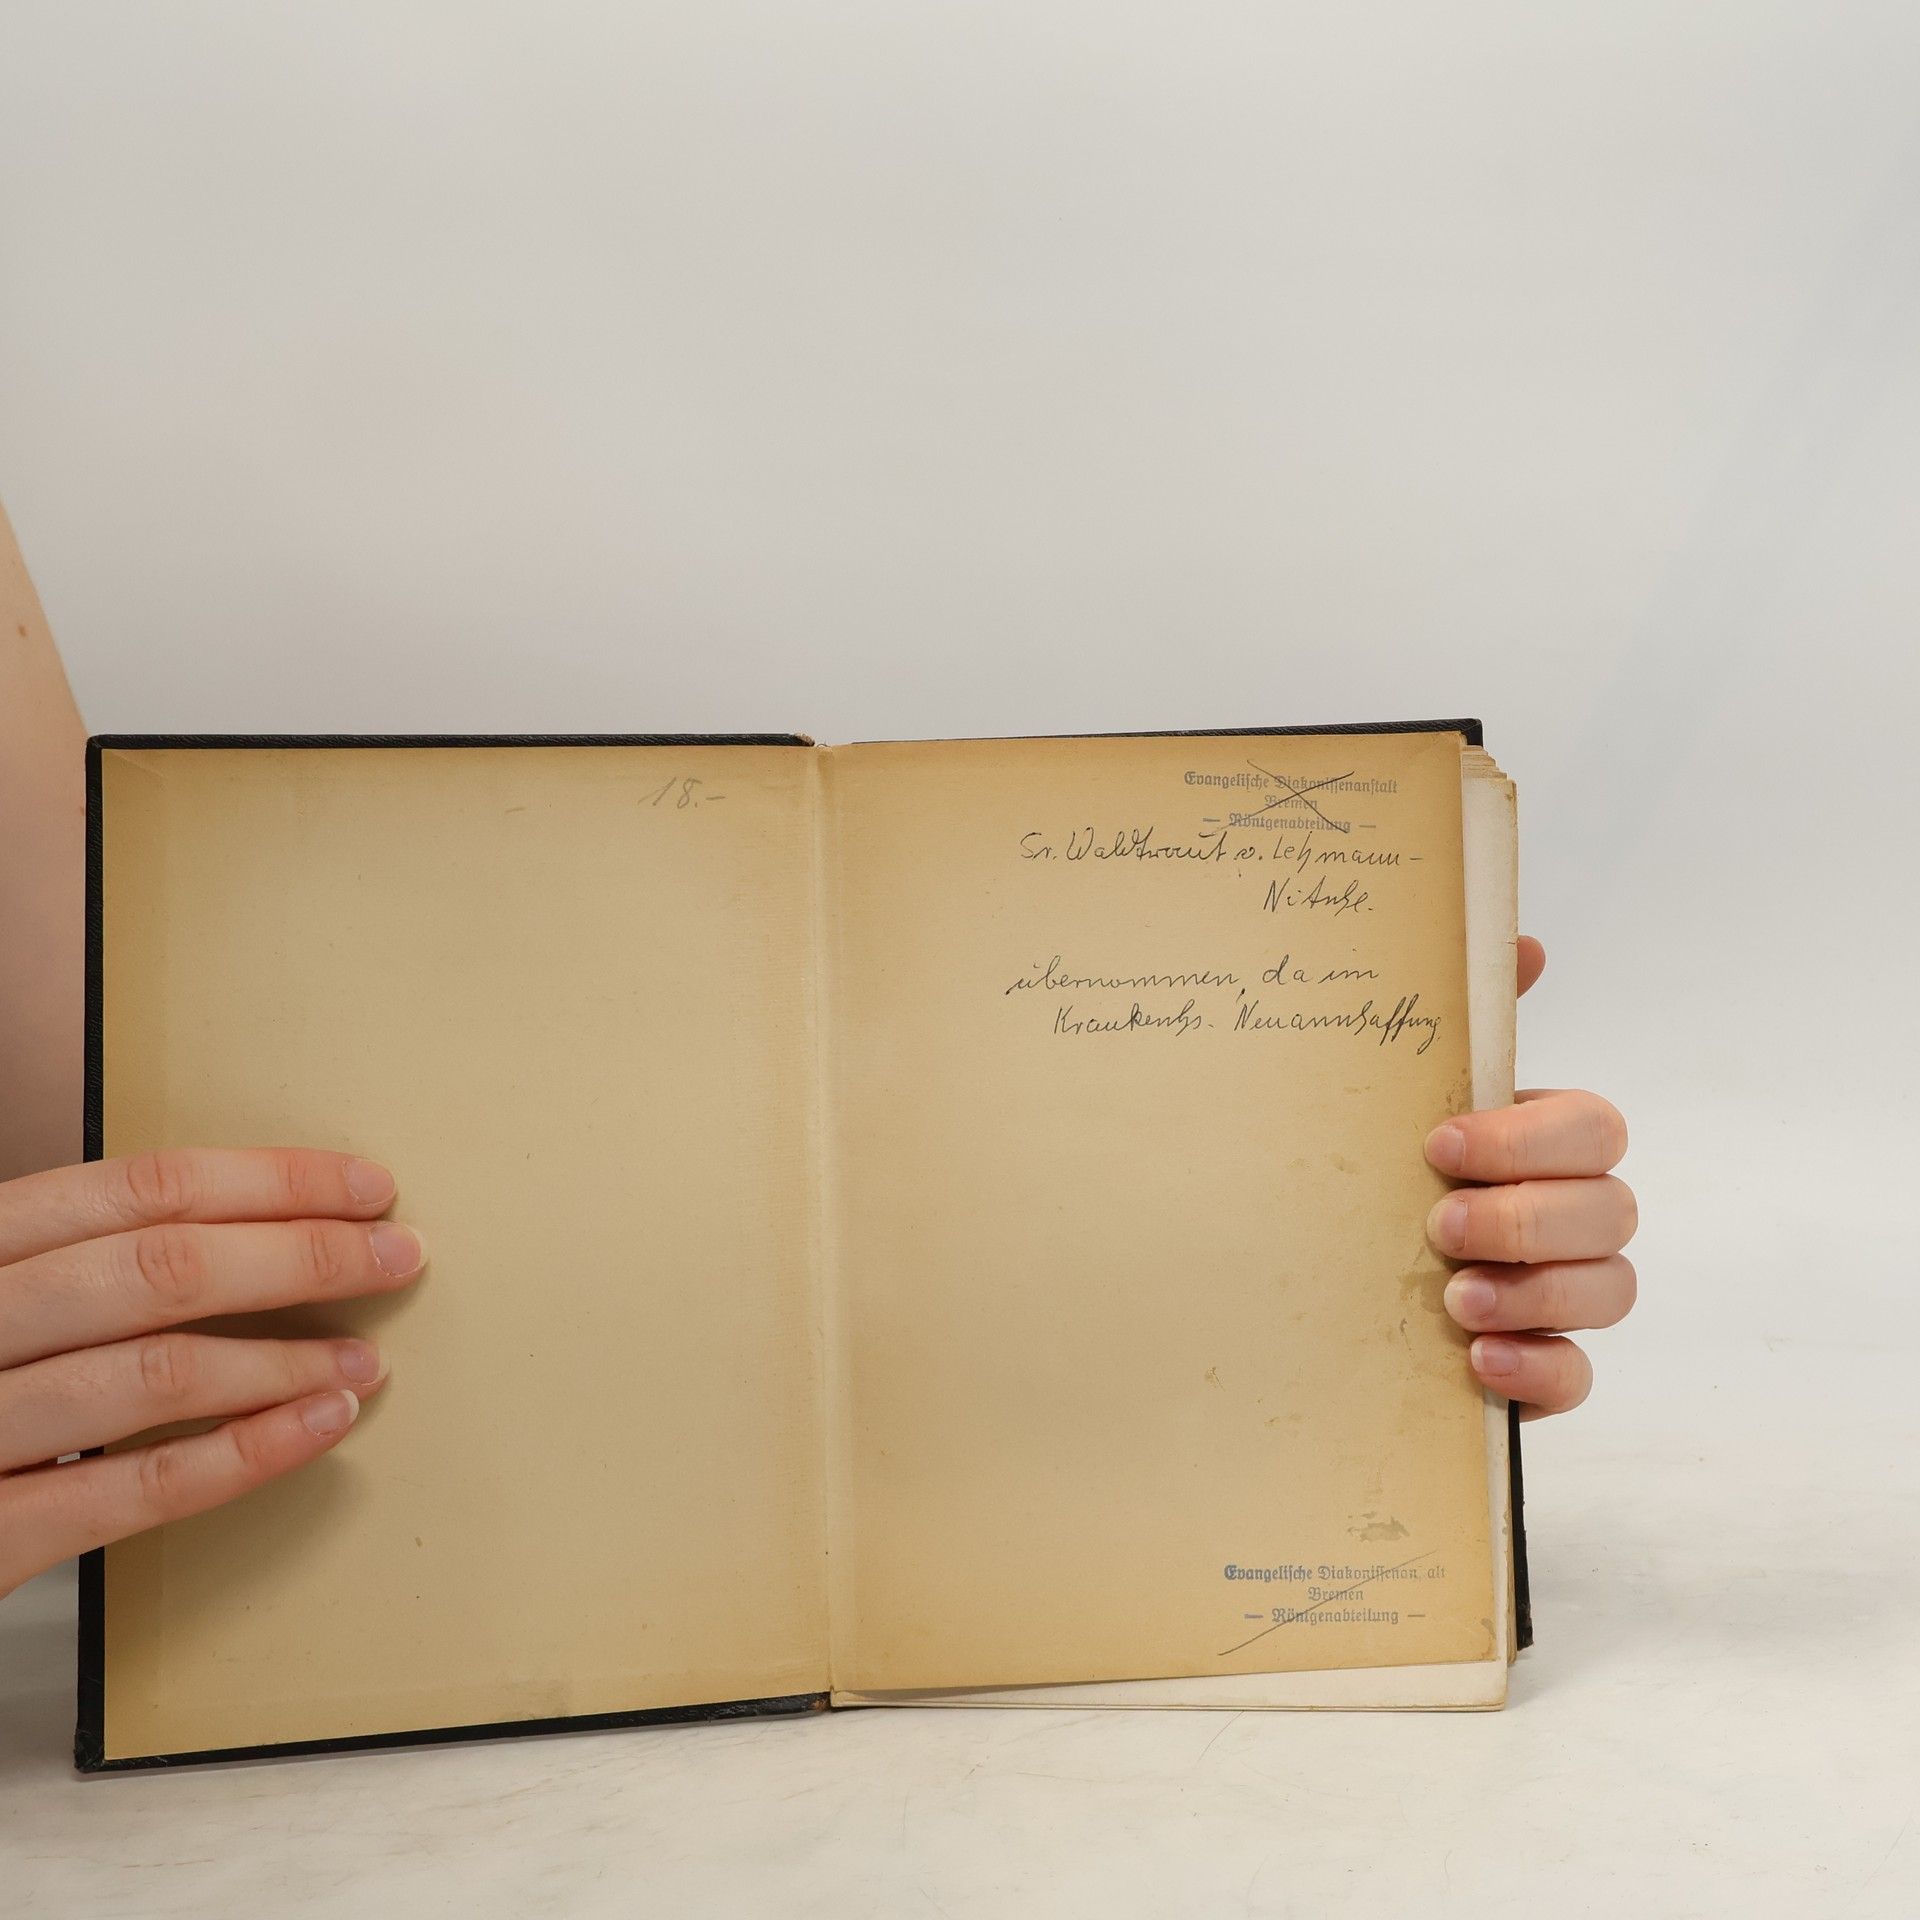 18.-
Evangelische Diakonissenanstalt
Bremen
— Röntgenabteilung —
Sr. Waldtraut v. Lehmann-
Nitsche.
übernommen, da im
Krankenhs. Neuanschaffung
Evangelische Diakonissenan alt
Bremen
— Röntgenabteilung —